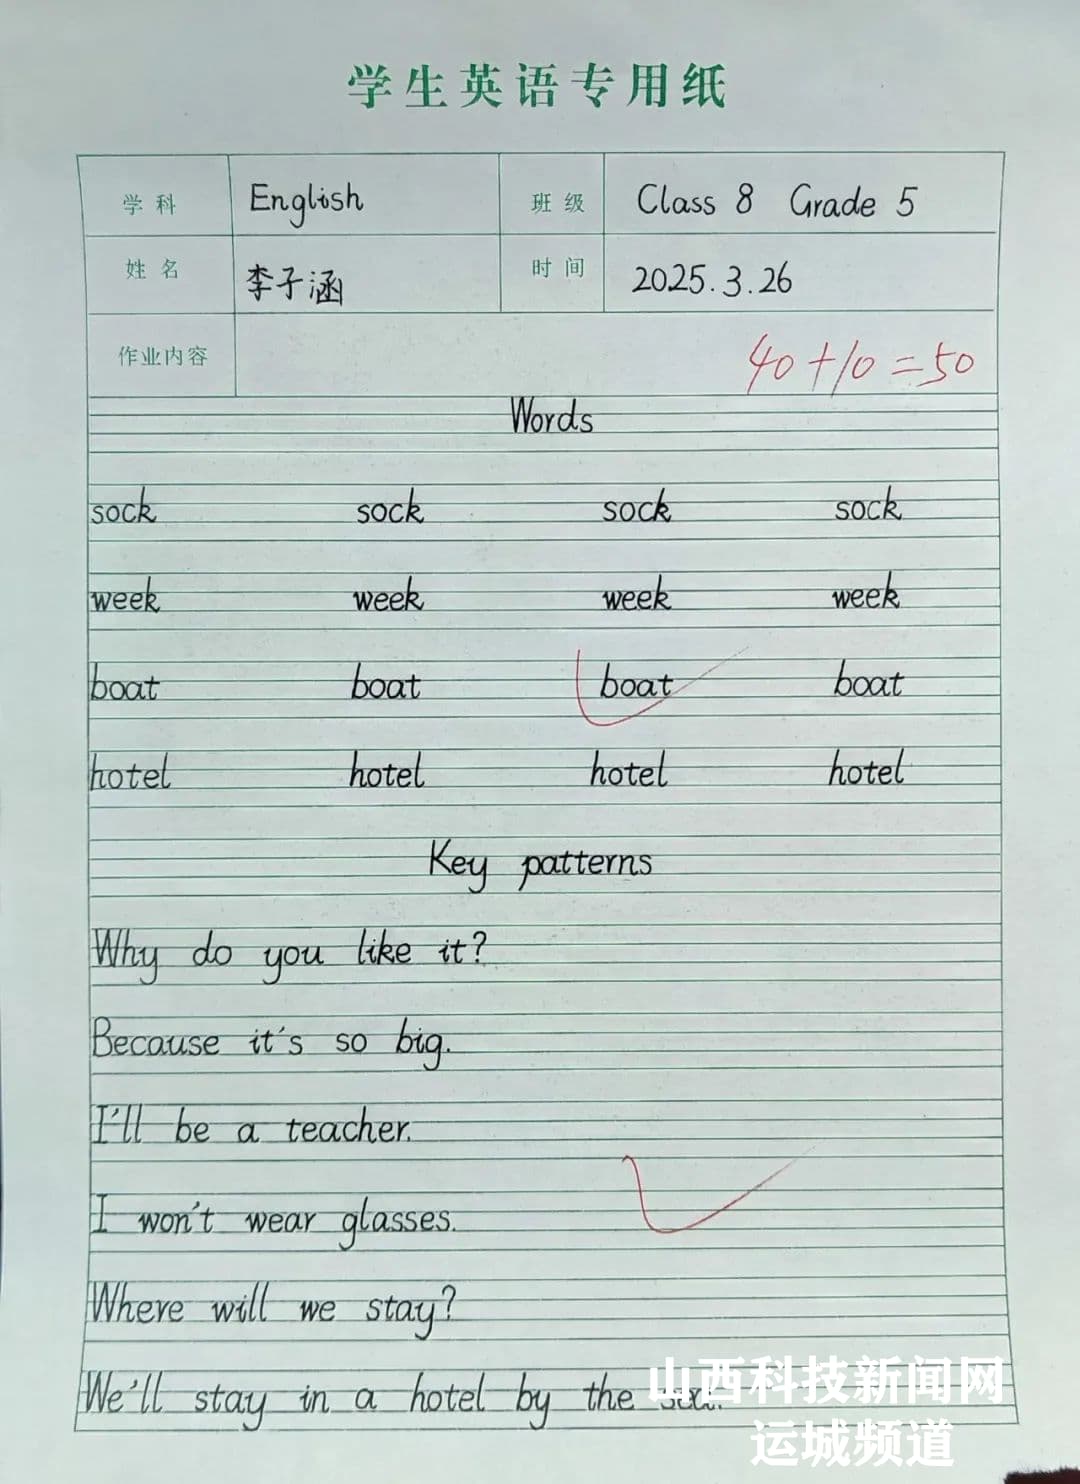 学生英语专用纸
学科 English 班级 Class 8 Grade 5
姓名 李子涵 时间 2025.3.26
作业内容 40+10=50
Words
sock sock sock sock
week week week week
boat boat boat boat
hotel hotel hotel hotel
Key patterns
Why do you like it?
Because it's so big.
I'll be a teacher.
I won't wear glasses.
Where will we stay?
We'll stay in a hotel by the sea.
山西科技新闻网
运城频道